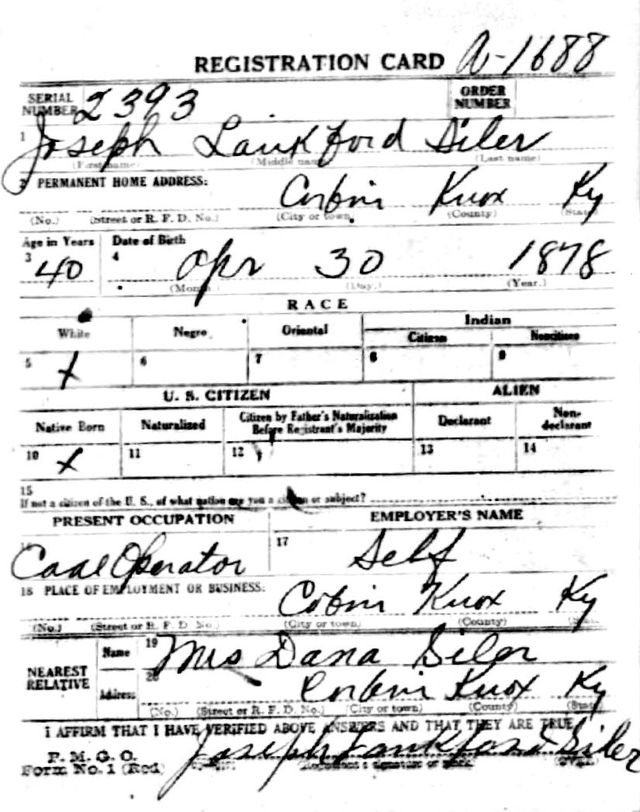 REGISTRATION CARD A-1688
SERIAL NUMBER 2393 ORDER NUMBER
1 Joseph Lankford Siler
(First name) (Middle name) (Last name)
2 PERMANENT HOME ADDRESS:
Corbin Knox Ky
(No.) (Street or R. F. D. No.) (City or town) (County) (State)
Age in Years Date of Birth
3 40 4 Apr 30 1878
(Month.) (Day.) (Year.)
RACE
White Negro Oriental Indian
Citizen Noncitizen
5 x 6 7 8 9
U. S. CITIZEN ALIEN
Native Born Naturalized Citizen by Father's Naturalization Before Registrant's Majority Declarant Non-declarant
10 x 11 12 13 14
15
If not a citizen of the U. S., of what nation are you a citizen or subject?
PRESENT OCCUPATION EMPLOYER'S NAME
Coal Operator 17 Self
18 PLACE OF EMPLOYMENT OR BUSINESS:
Cobin Knox Ky
(No.) (Street or R. F. D. No.) (City or town) (County) (State)
NEAREST RELATIVE Name 19 Mrs Dana Siler
Address 20 Corbin Knox Ky
(No.) (Street or R. F. D. No.) (City or town) (County) (State)
I AFFIRM THAT I HAVE VERIFIED ABOVE ANSWERS AND THAT THEY ARE TRUE
P. M. G. O.
Form No. 1 (Red) Joseph Lankford Siler
(Registrant's signature or mark)